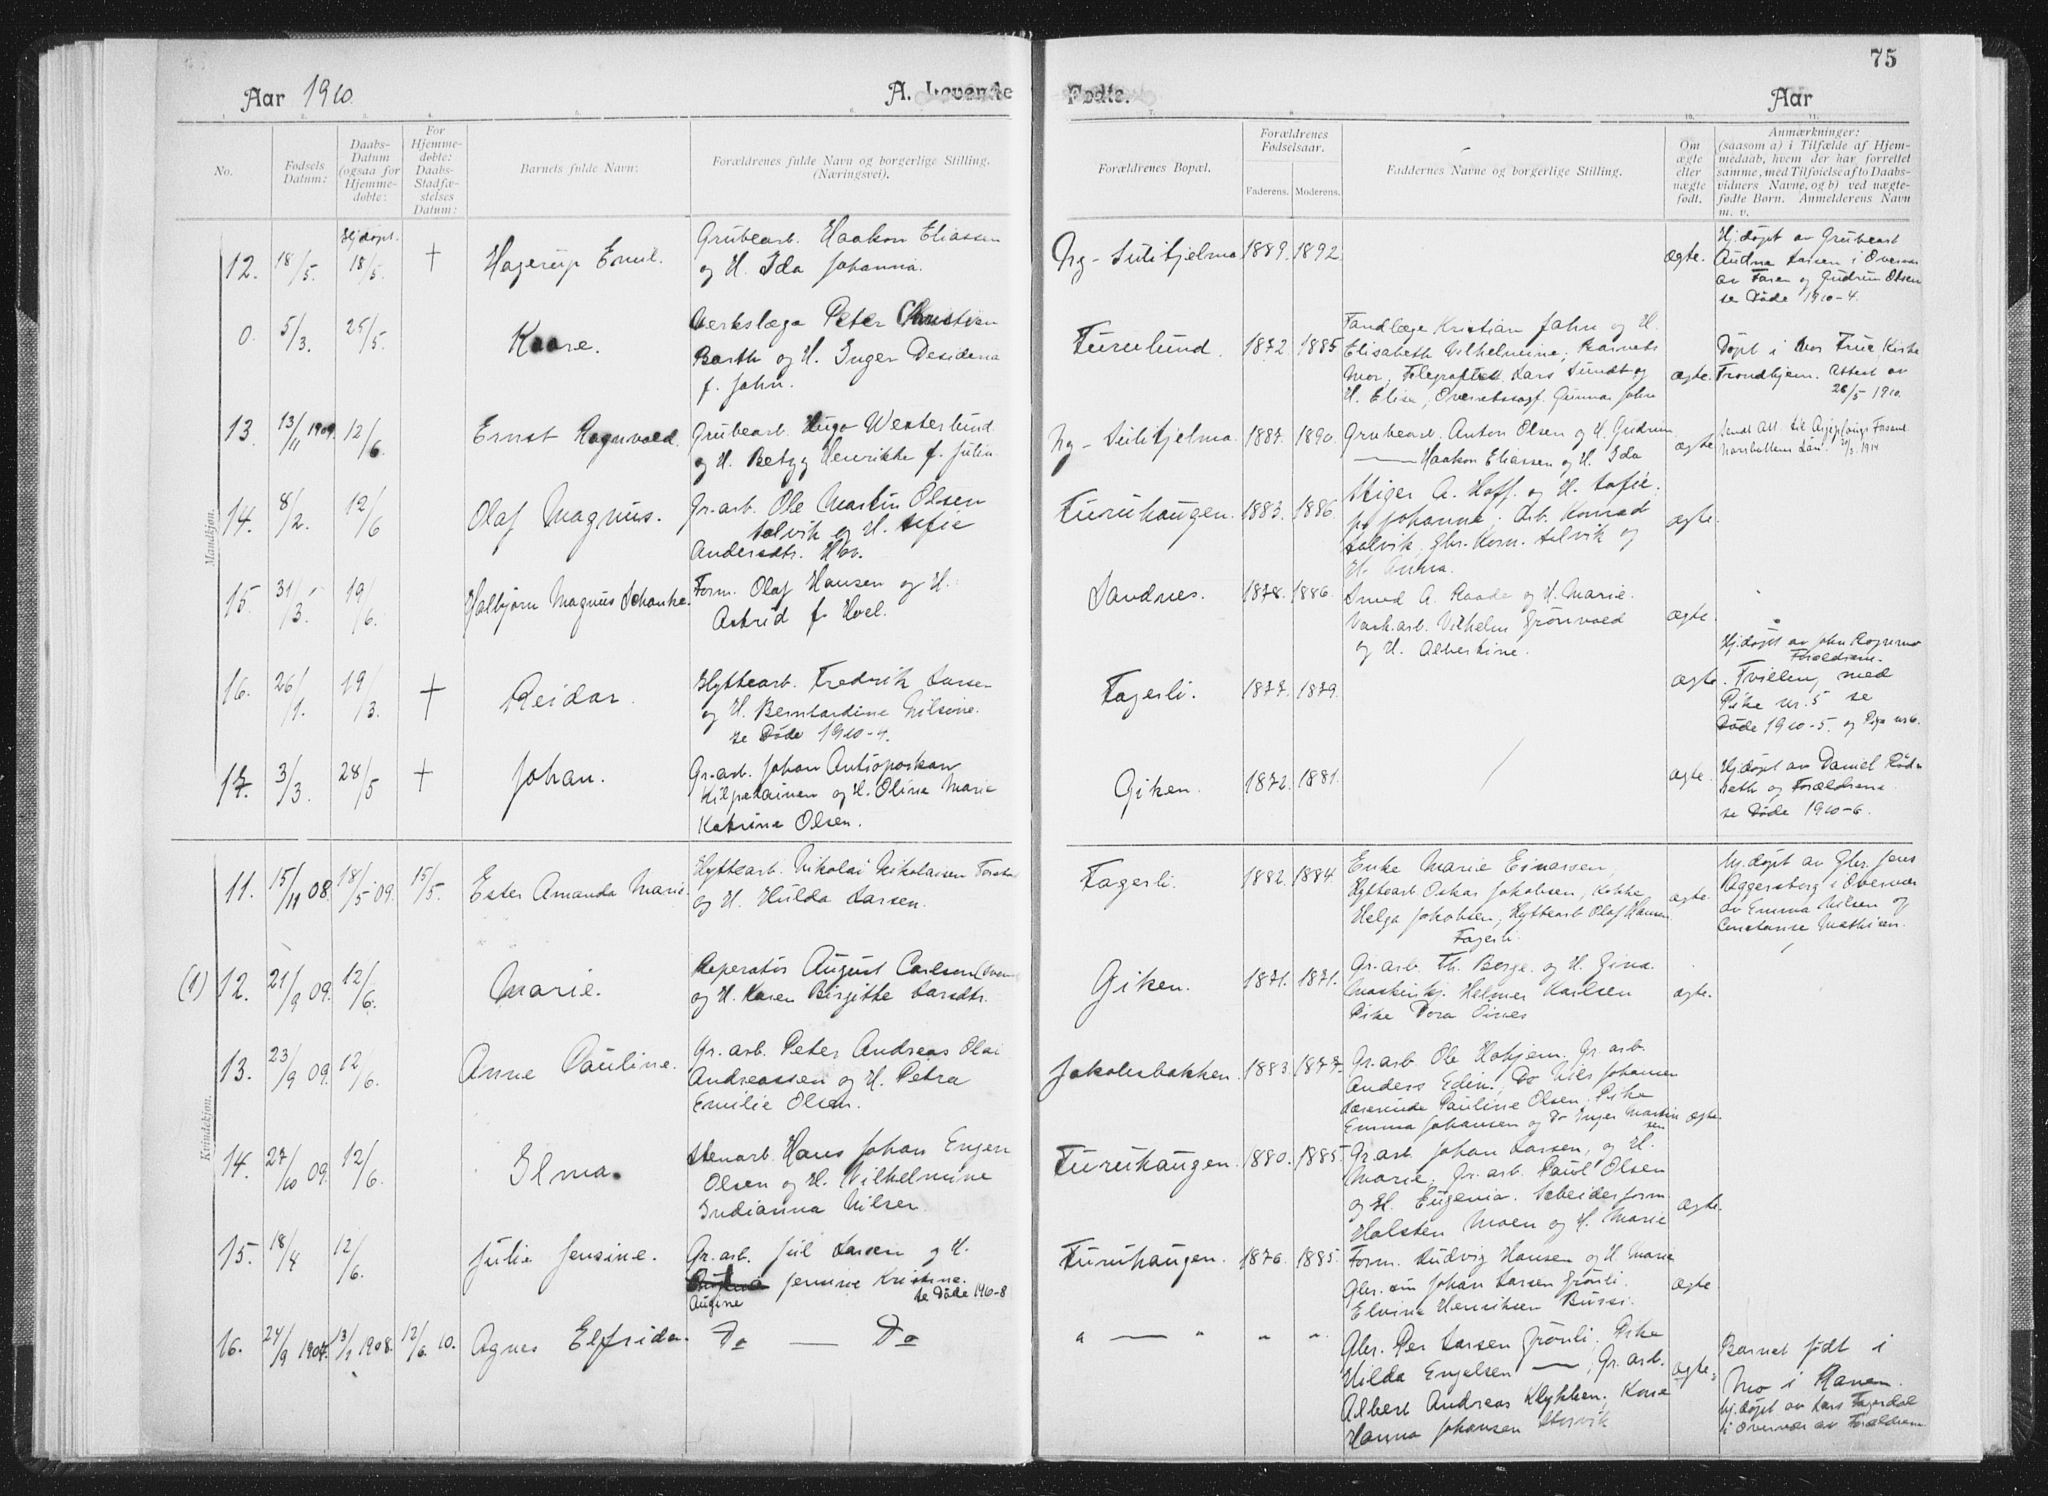 75
Aar 1910. A. Levende Fødte. Aar
1. 2. 3. 4. 5. 6. 7. 8. 9. 10. 11.
No.
Fødsels Datum:
Daabs-Datum (ogsaa for Hjemmedøbte:
For Hjemmedøbte: Daabs-Stadfæstelses Datum:
Barnets fulde Navn:
Forældrenes fulde Navn og borgerlige Stilling. (Næringsvei).
Forældrenes Bopæl.
Forældrenes Fødselsaar.
Faderens. Moderens.
Faddernes Navne og borgerlige Stilling.
Om ægte eller uægte født.
Anmærkninger: (saasom a) i Tilfælde af Hjemmedaab, hvem der har forrettet samme, med Tilføielse af to Daabsvidners Navne, og b) ved uægtefødte Børn. Anmelderens Navn m. v.
Mandkjøn.
12. 18/5. Hj.døpt. 18/5. + Hagerup Emil.
Grubearb. Haakon Eliassen
og H. Ida Johanna.
Ny-Sulitjelma 1889. 1892. ægte.
Hj.døpt av Grubearb
Larsen i Overvær
av Faren og Gudrun Olsen
se Døde 1910-4.
0. 5/3. 25/5. Kaare.
Verkslæge Peter Christian
Barth og H. Inger Desideria
f. Jahn.
Furulund. 1872 1885
Tandlæge Kristian Jahn og H.
Elisabeth Vilhelmine, Barnets
Mor, Lars Sundt og
H. Elise, Overretssagf. Gunnar Jahn
ægte.
Døpt i Vor Frue Kirke
Trondhjem. Attest av
26/5 1910.
13. 13/11 1909. 12/6. Ernst Ragnvald.
Grubearb. Hugo Westerlund
og H. Betzy Henrikke f. Julin
Ny-Sulitjelma. 1887. 1890.
Grubearb. Anton Olsen og H. Gudrun
— Haakon Eliassen og H. Ida
ægte
Sendt Att. til Arjeplougs Forsaml.
Norrbottens Län. 1914
14. 8/2. 12/6 Olaf Magnus.
Gr.arb. Ole Martin Olsen
Solvik og H. Sofie
Andersdtr.
Furuhaugen. 1883. 1886
Stiger A. Hoff. og H. Sofie.
Johanna, Arb. Konrad
Solvik, Gbr. Korn. Solvik og
H. Anna.
ægte.
15. 31/3. 19/6. Halbjørn Magnus Schanke.
Form. Olaf Hansen og H.
Astrid f. Hoel.
Sandnes. 1878. 1886.
Smed A. Raade og H. Marie.
Vask.arb. Vilhelm Grönvold
og H. Albertine.
ægte.
16. 26/1. 19/3. + Reidar.
Hyttearb. Fredrik Larsen
og H. Bernhardine Nilsine.
se Døde 1910-
Fagerli. 1877. 1879. ægte.
Hj.døpt av John
Forældrene.
Tvilling med
Pike nr. 5 se
Døde 1910-5. og
17. 3/3. 28/5 + Johan.
Gr.arb. Johan
og H. Oline Marie
Katrine Olsen.
Giken. 1872. 1881. ægte.
Hj.døpt av Daniel
og Forældrene
se Døde 1910-6.
Kvindekjøn.
11. 15/11 08. 18/5 09. 15/5. Ester Amanda Marie.
Hyttearb. Nikolai Nikolaisen
og H. Hulda Larsen.
Fagerli. 1882. 1884.
Enke Marie Einarsen,
Hyttearb Oskar Jakobsen, Kokke
Helga Jakobsen, Hyttearb Olaf Hansen.
Fagerli.
ægte.
Hj.døpt av Gbr. Jens
i Overvær
av Emma Nilsen og
Constanse Mathisen.
(1) 12. 21/9 09. 12/6. Marie.
Reperatør August Carlson
og H. Karen Birgitte Larsdtr.
Giken. 1871. 1871.
Gr.arb. Th. Berge. og H. Gina.
Maskinkj. Helmer Karlsen
Pike Dora
ægte.
13. 23/9 09. 12/6. Anne Pauline.
Gr. arb. Peter Andreas Olai
Andreassen og H. Petra
Emilie Olsen.
Jakobsbakken. 1883. 1877.
Gr.arb. Ole Hokjem. Gr. arb.
Anders Edin, Do Nils Johansen
Lærerinde Pauline Olsen. Pike
Emma Johansen og Do Inger Martinsen
ægte.
14. 27/10 09. 12/6. Ilma.
Stenarb. Hans Johan Engen
Olsen og H. Vilhelmine
Indianna Nilsen.
Furuhaugen. 1880. 1885.
Gr.arb. Johan Larsen, og H.
Marie, Gr.arb. Paul Olsen
og H. Eugenia. Scheiderform
Halsten Moen og H. Marie
ægte.
15. 18/4 12/6. Julie Jensine.
Gr.arb. Jul Larsen og H.
Jensine Kristine.
Augine se Døde 1910-8
Furuhaugen. 1876. 1885.
Form. Ludvig Hansen og H. Marie
Gbr. Johan Larsen Grönli.
Elvine Henriksen Bursi.
ægte.
16. 24/9 1907. 13/1 1908. 12/6. 10. Agnes Elfrida.
Do — Do
" — " " "
Gbr. Per Larsen Grönli. Pike
Hilda Engelsen — , Gr.arb.
Albert Andreas Klykken, Kone
Hanna Johansen Storvik
ægte.
Barnet født i
Mo i Ranen.
Hj.døpt av Lars Fagerdal
i Overvær av Forældrene